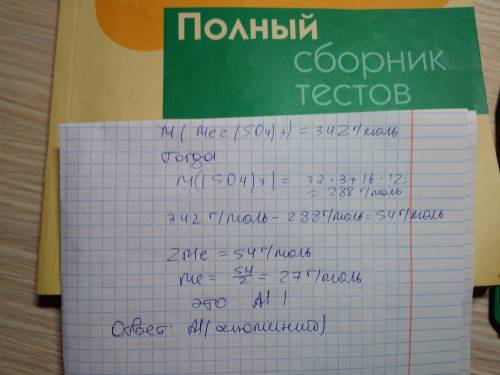 Полный
сборник
тестов
M(Me2(SO4)3) = 342 г/моль
Тогда
M((SO4)3) = 32·3+16·12=
= 288 г/моль
342 г/моль - 288 г/моль = 54 г/моль
2Me = 54 г/моль
Me = 54/2 = 27 г/моль
это Al!
Ответ: Al (алюминий)